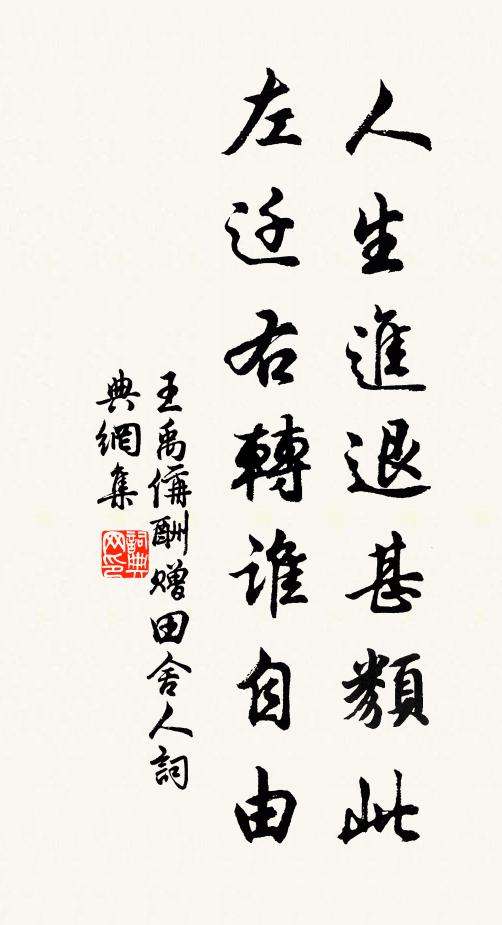 人生進退甚類此
左迁右轉誰自由
王禹偁酬贈田舍人詞
典網集
詞典
网印